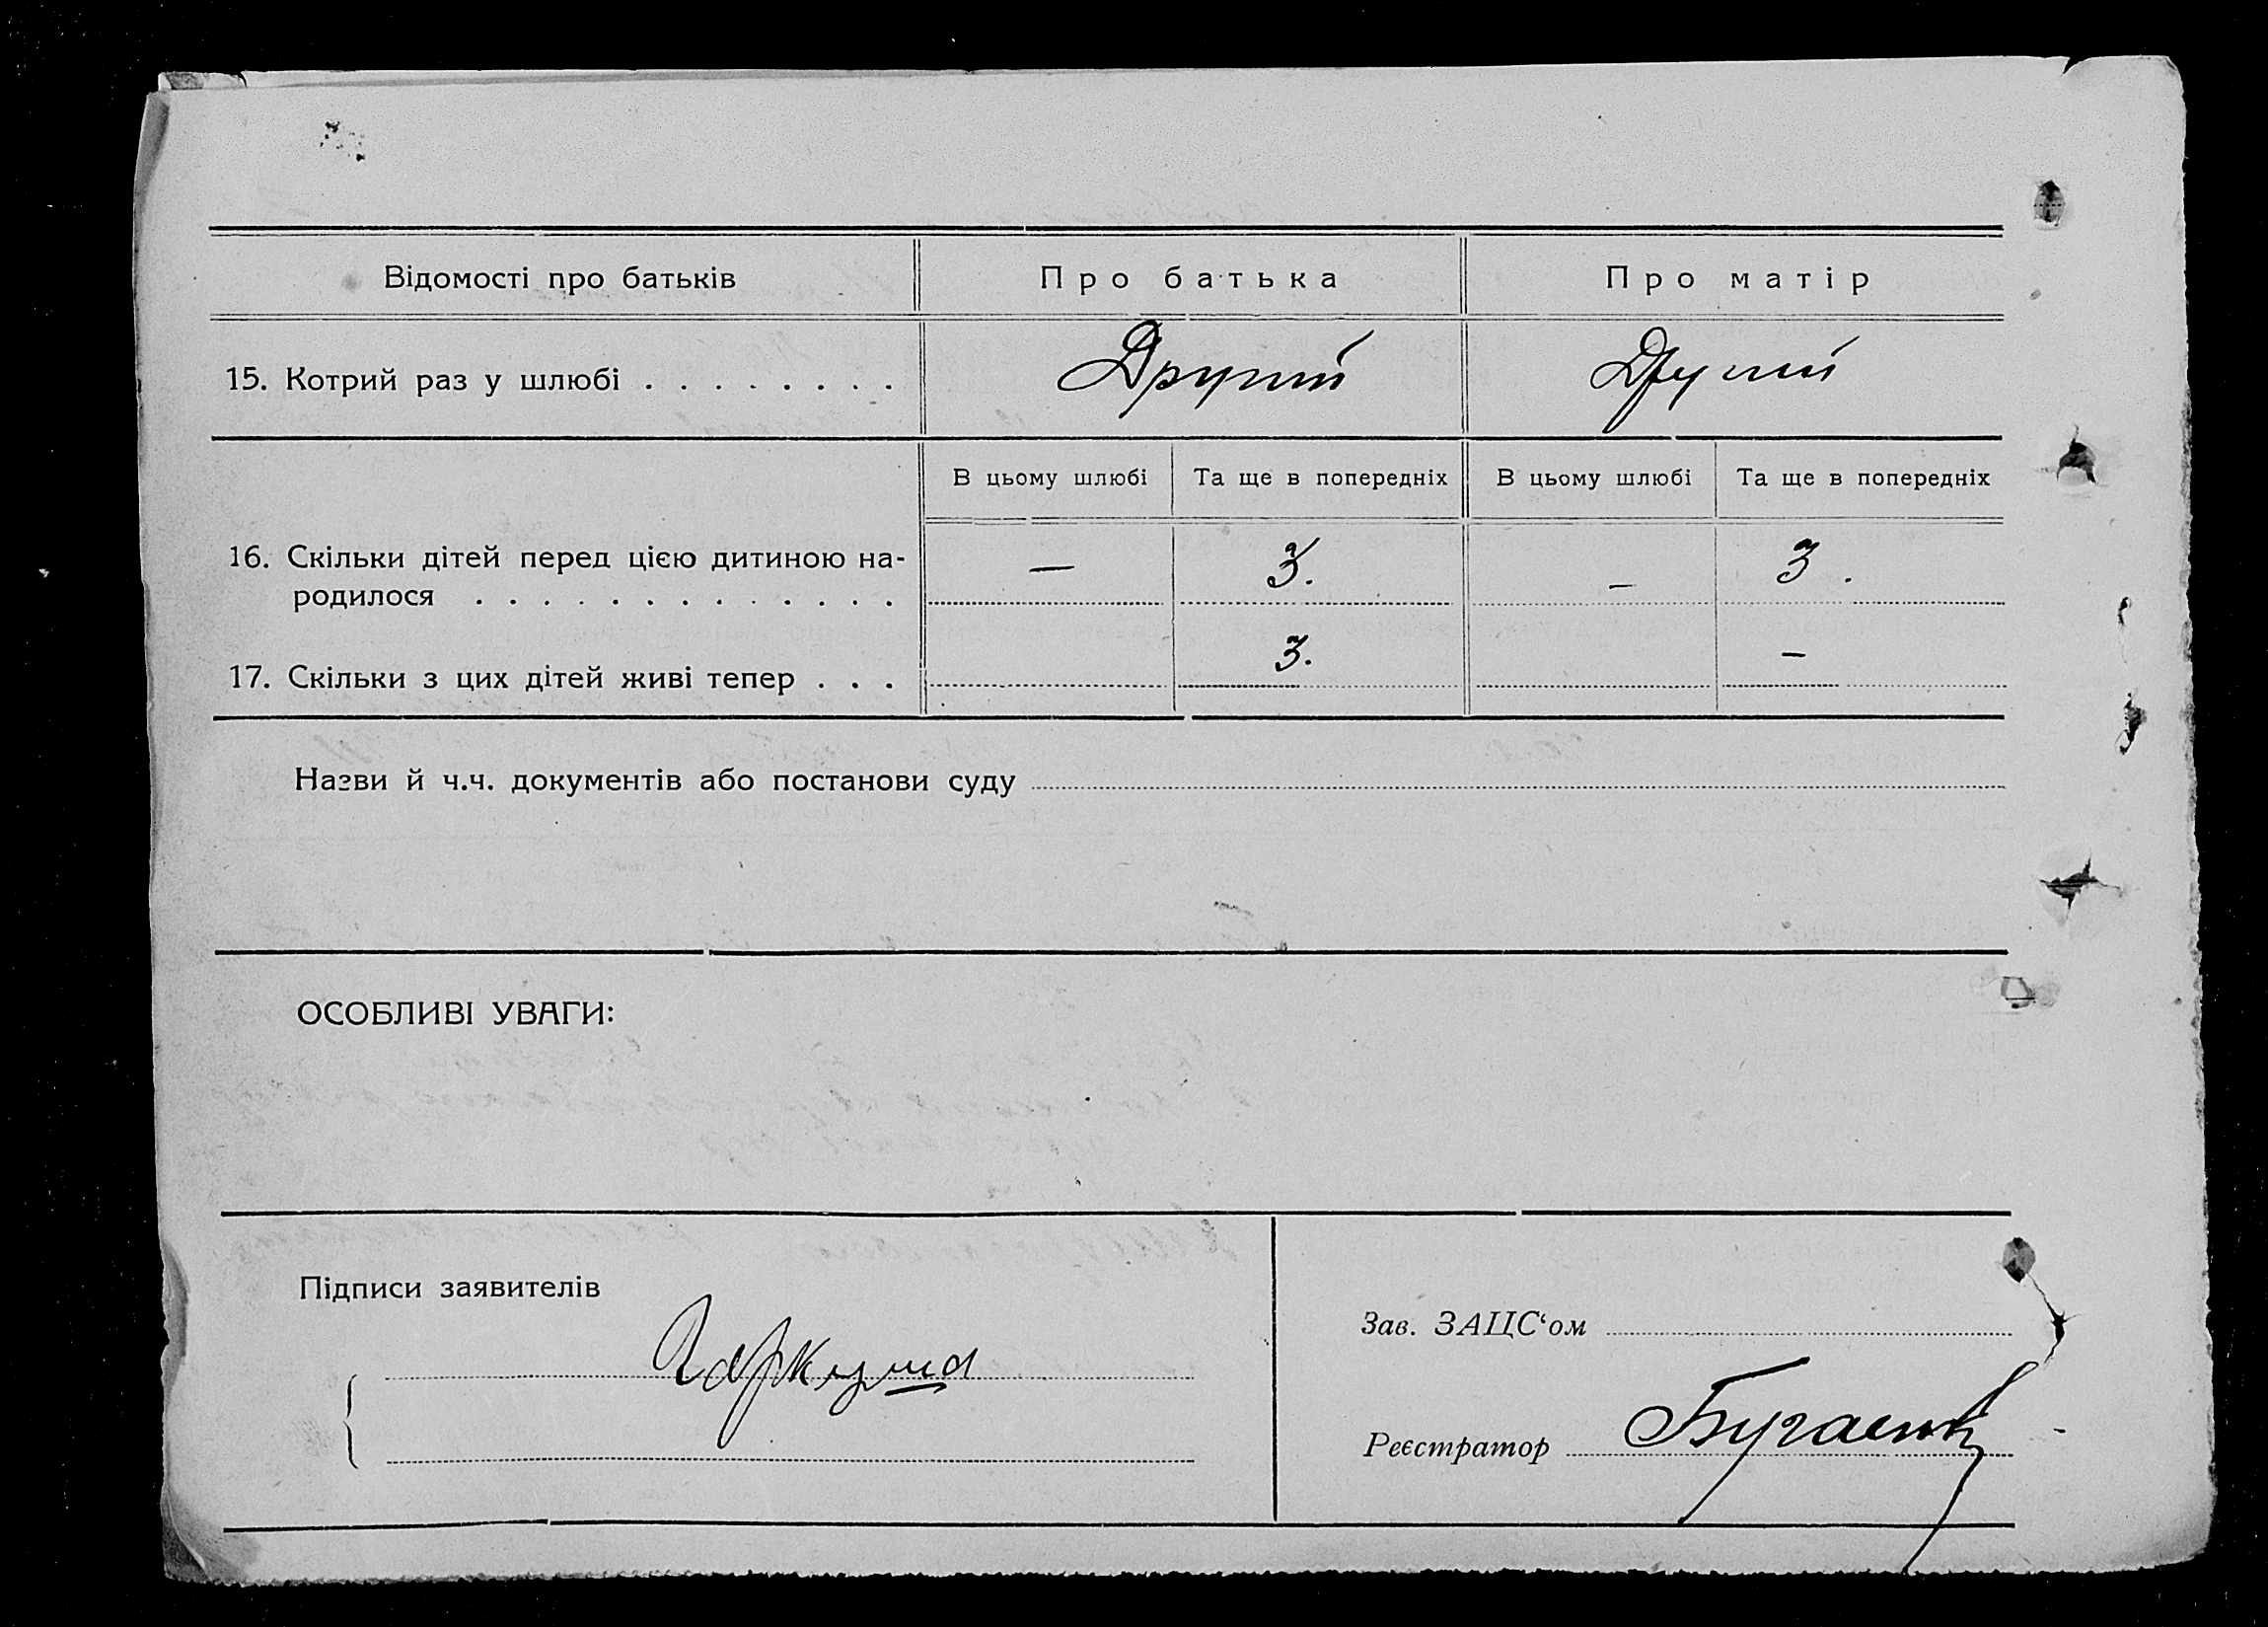 Відомості про батьків Про батька Про матір
15. Котрий раз у шлюбі . . . . . . . . Другий Другий
В цьому шлюбі Та ще в попередніх В цьому шлюбі Та ще в попередніх
16. Скільки дітей перед цією дитиною на- — 3. — 3.
родилося . . . . . . . . . . . . .
17. Скільки з цих дітей живі тепер . . . 3. —
Назви й ч.ч. документів або постанови суду
ОСОБЛИВІ УВАГИ:
Підписи заявителів
Зав. ЗАЦС‘ом
Гаркуша
Реєстратор Бугаенко